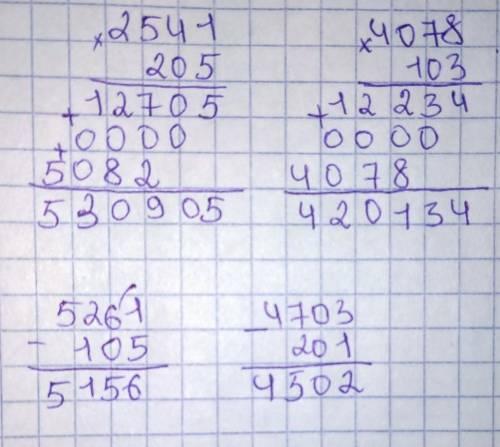 × 2541
205
+ 12705
+ 0000
5082
530905
× 4078
103
+ 12234
0000
4078
420134
5261
- 105
5156
- 4703
201
4502